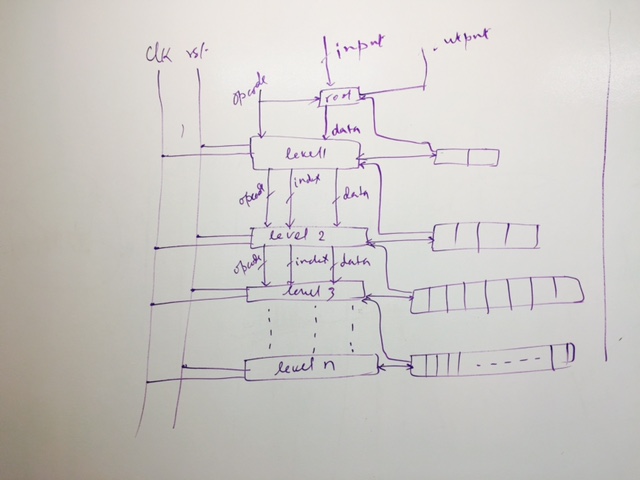 clk rst
input
output
opcode
root
data
level1
opcode
index
data
level 2
opcode
index
data
level 3
level n